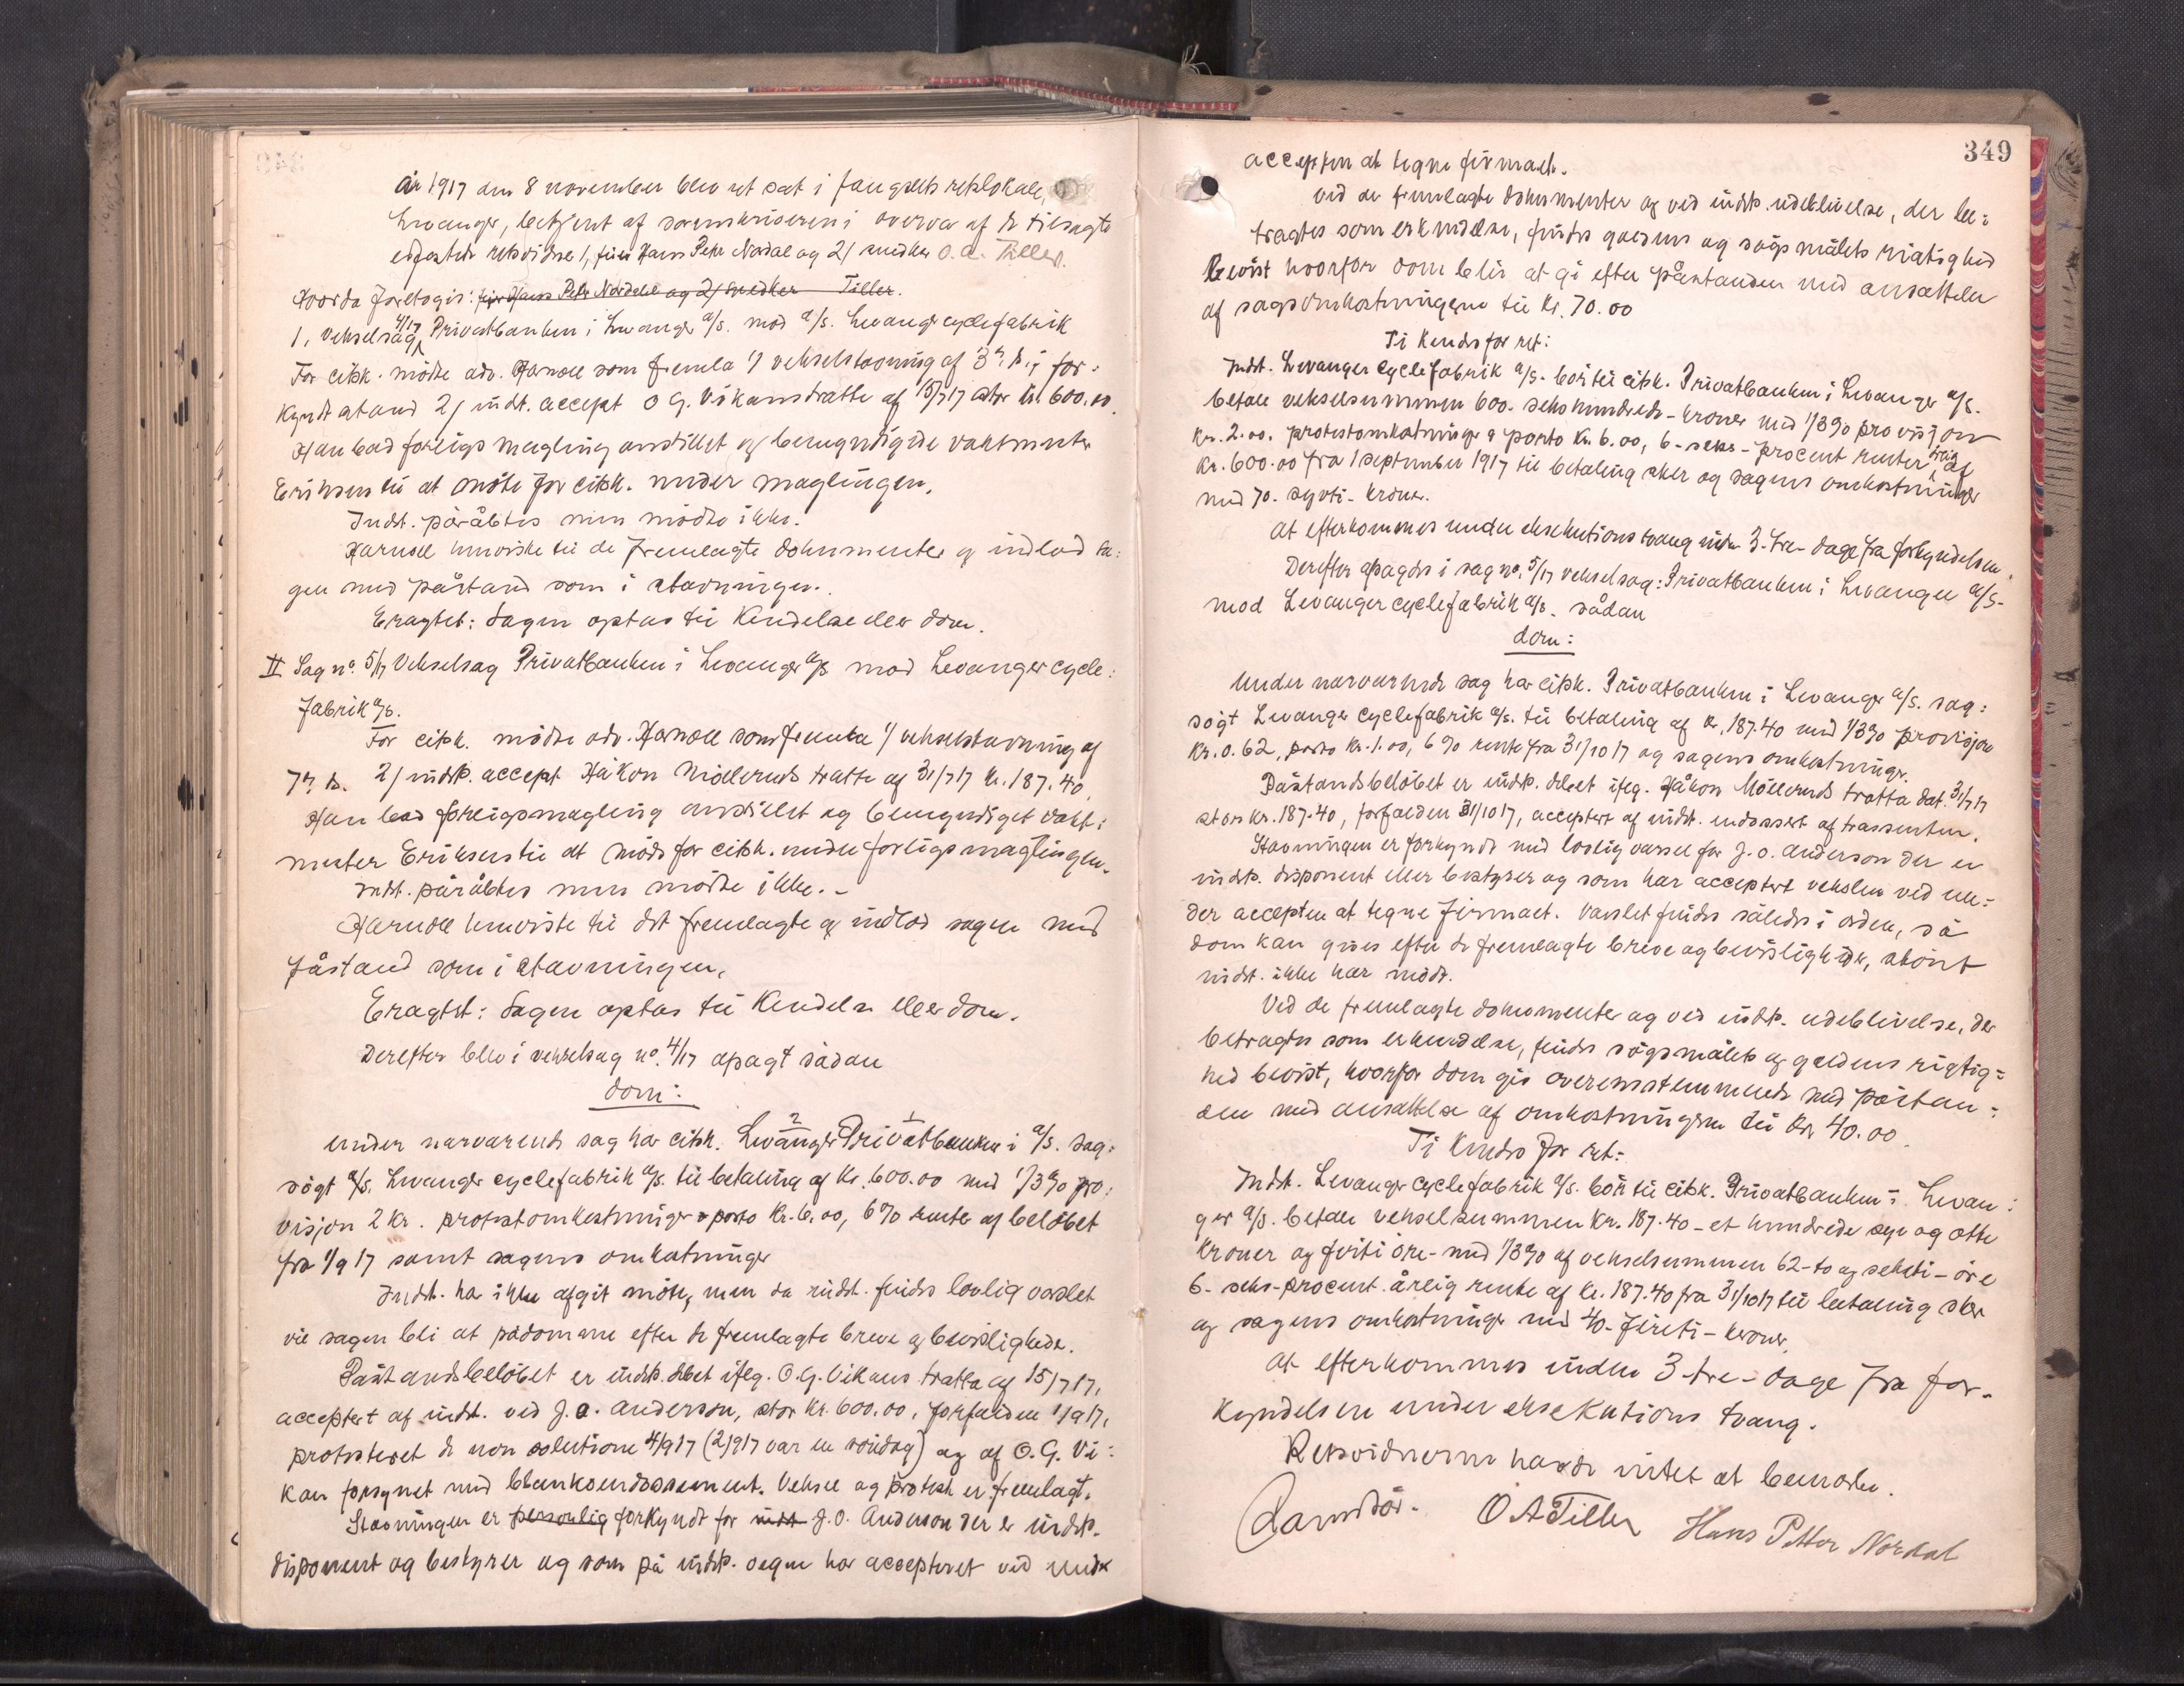 År 1917 den 8 november blev ret sat i fængslets retslokale,
Levanger, betjent af sorenskriveren i overvær af de tilsagte
edfæstede retsvidner 1, Hans Peter Nordal og 2/ snedker O. A. Tiller.
Hvorda foretoges: Hans Peter Nordal og 2/ snedker Tiller.
1, Vekselsag 4/17 Privatbanken i Levanger a/s. mod a/s. Levanger cyclefabrik
For citsk. mødte adv. Harnoll som fremla 1/ vekselstævning af 3 d. m. i for-
kyndt stand 2/ indst. accept O G. Vikans tratte af 15/7 17 stor kr. 600.00.
Han bad forligsmægling anstillet og bemyndigede vaktmester
Eriksen til at møte for citsk. under mæglingen.
Indst. påråbtes men mødte ikke.
Harnoll henviste til de fremlagte dokumenter og indlod sa-
gen med påstand som i stævningen.
Eragtet: Sagen optas til Kendelse eller dom.
II Sag no. 5/17 Vekselsag Privatbanken i Levanger a/s mod Levanger cycle-
fabrik a/s.
For citsk. mødte adv. Harnoll som fremla 1/ vekselstævning af
7 d. m. 2/ indst. accept Håkon Mølleruds tratte af 31/7 17 kr. 187.40
Han bad forligsmægling anstillet og bemyndiget vakt-
mester Eriksen til at møde for citsk. under forligsmæglingen.
Indst. påråbtes men mødte ikke. -
Harnoll henviste til det fremlagte og indlod sagen med
påstand som i stævningen.
Eragtet: Sagen optas til Kendelse eller dom.
Derefter blev i vekselsag no. 4/17 afsagt sådan
dom:
Under nærværende sag har citsk. Levanger 2 Privatbanken 1 i a/s. sag-
søgt a/s. Levanger cyclefabrik a/s. til betaling af Kr. 600.00 med 1/3 % pro-
visjon 2 kr. protestomkostninger & porto Kr. 6.00, 6 % renter af beløbet
fra 1/9 17 samt sagens omkostninger
Indst. har ikke afgit møte, men da indst. findes lovlig varslet
vil sagen bli at pådømme efter de fremlagte breve og bevisligheder.
Påstandsbeløbet er indst. debet ifølg. O. G. Vikans tratta af 15/7 17,
acceptert af indst. ved J. O. Anderson, stor Kr. 600.00, forfalden 1/9 17,
protesteret de non solutione 4/9 17 (2/9 17 var en søndag) og af O. G. Vi-
kan forsynet med blankoendossement. Veksel og protest er fremlagt.
Stævningen er personlig forkyndt for indst J. O. Anderson der er indst.
disponent og bestyrer og som på indst. vegne har accepteret ved under
349
accepten at tegne firmaet.
Ved de fremlagte dokumenter og ved indst. udeblivelse, der be-
tragtes som erkendelse, findes gældens og søgsmålets rigtighed
bevist hvorfor dom blir at gi efter påstanden med ansættelse
af sagsomkostningerne til Kr. 70.00
Ti Kendes for ret:
Indst. Levanger Cyclefabrik a/s. bør til citsk. Privatbanken i Levanger a/s.
betale vekselsummen 600. sekshundrede - kroner med 1/3 % provisjon
Kr. 2.00. protestomkostninger & porto Kr. 6.00, 6 - seks - procent renter årlig af
Kr. 600.00 fra 1 september 1917 til betaling sker og sagens omkostninger
med 70. sytti - kroner.
At efterkommes under eksekutionstvang inden 3. tre - dage fra forkyndelsen.
Derefter afsagdes i sag no. 5/17 vekselsag: Privatbanken i Levanger a/s-
mod Levanger cyclefabrik a/s. sådan
dom:
Under nærværende sag har citsk. Privatbanken i Levanger a/s. sag-
søgt Levanger Cyclefabrik a/s. til betaling af kr. 187.40 med 1/3 % provisjon
Kr. 0.62, porto Kr. 1.00, 6 % rente fra 31/10 17 og sagens omkostninger.
Påstandsbeløbet er indst. debet ifølg. Håkon Mölleruds tratta dat. 31/7 17
stor Kr. 187.40, forfalden 31/10 17, acceptert af indst. endossert af trassenten.
Stævningen er forkyndt med lovlig varsel for J. O. Anderson der er
indst. disponent eller bestyrer og som har acceptert vekslen ved un-
der accepten at tegne firmaet. Varslet findes således i orden, så
dom kan gives efter de fremlagte breve og bevisligheder, skönt
indst. ikke har mødt.
Ved de fremlagte dokumenter og ved indst. udeblivelse, der
betragtes som erkendelse, findes søgsmålets og gældens rigtig-
hed bevist, hvorfor dom gis overensstemmende med påstan-
den med ansættelse af omkostningerne til Kr. 40.00.
Ti kendes for ret:
Indst. Levanger Cyclefabrik a/s. bør til citsk. Privatbanken i Levan-
ger a/s. betale vekselsummen Kr. 187.40 - et hundrede syv og otti
Kroner og førti øre - med 1/3 % af vekselsummen 62 - to og seksti - øre
6 - seks - procent årlig rente af Kr. 187.40 fra 31/10 17 til betaling sker
og sagens omkostninger med 40 - førti - kroner.
At efterkommes inden 3 - tre - dage fra for-
kyndelsen under eksekutions tvang.
Retsvidnerne havde intet at bemerke.
O A Tiller Hans Petter Nordal